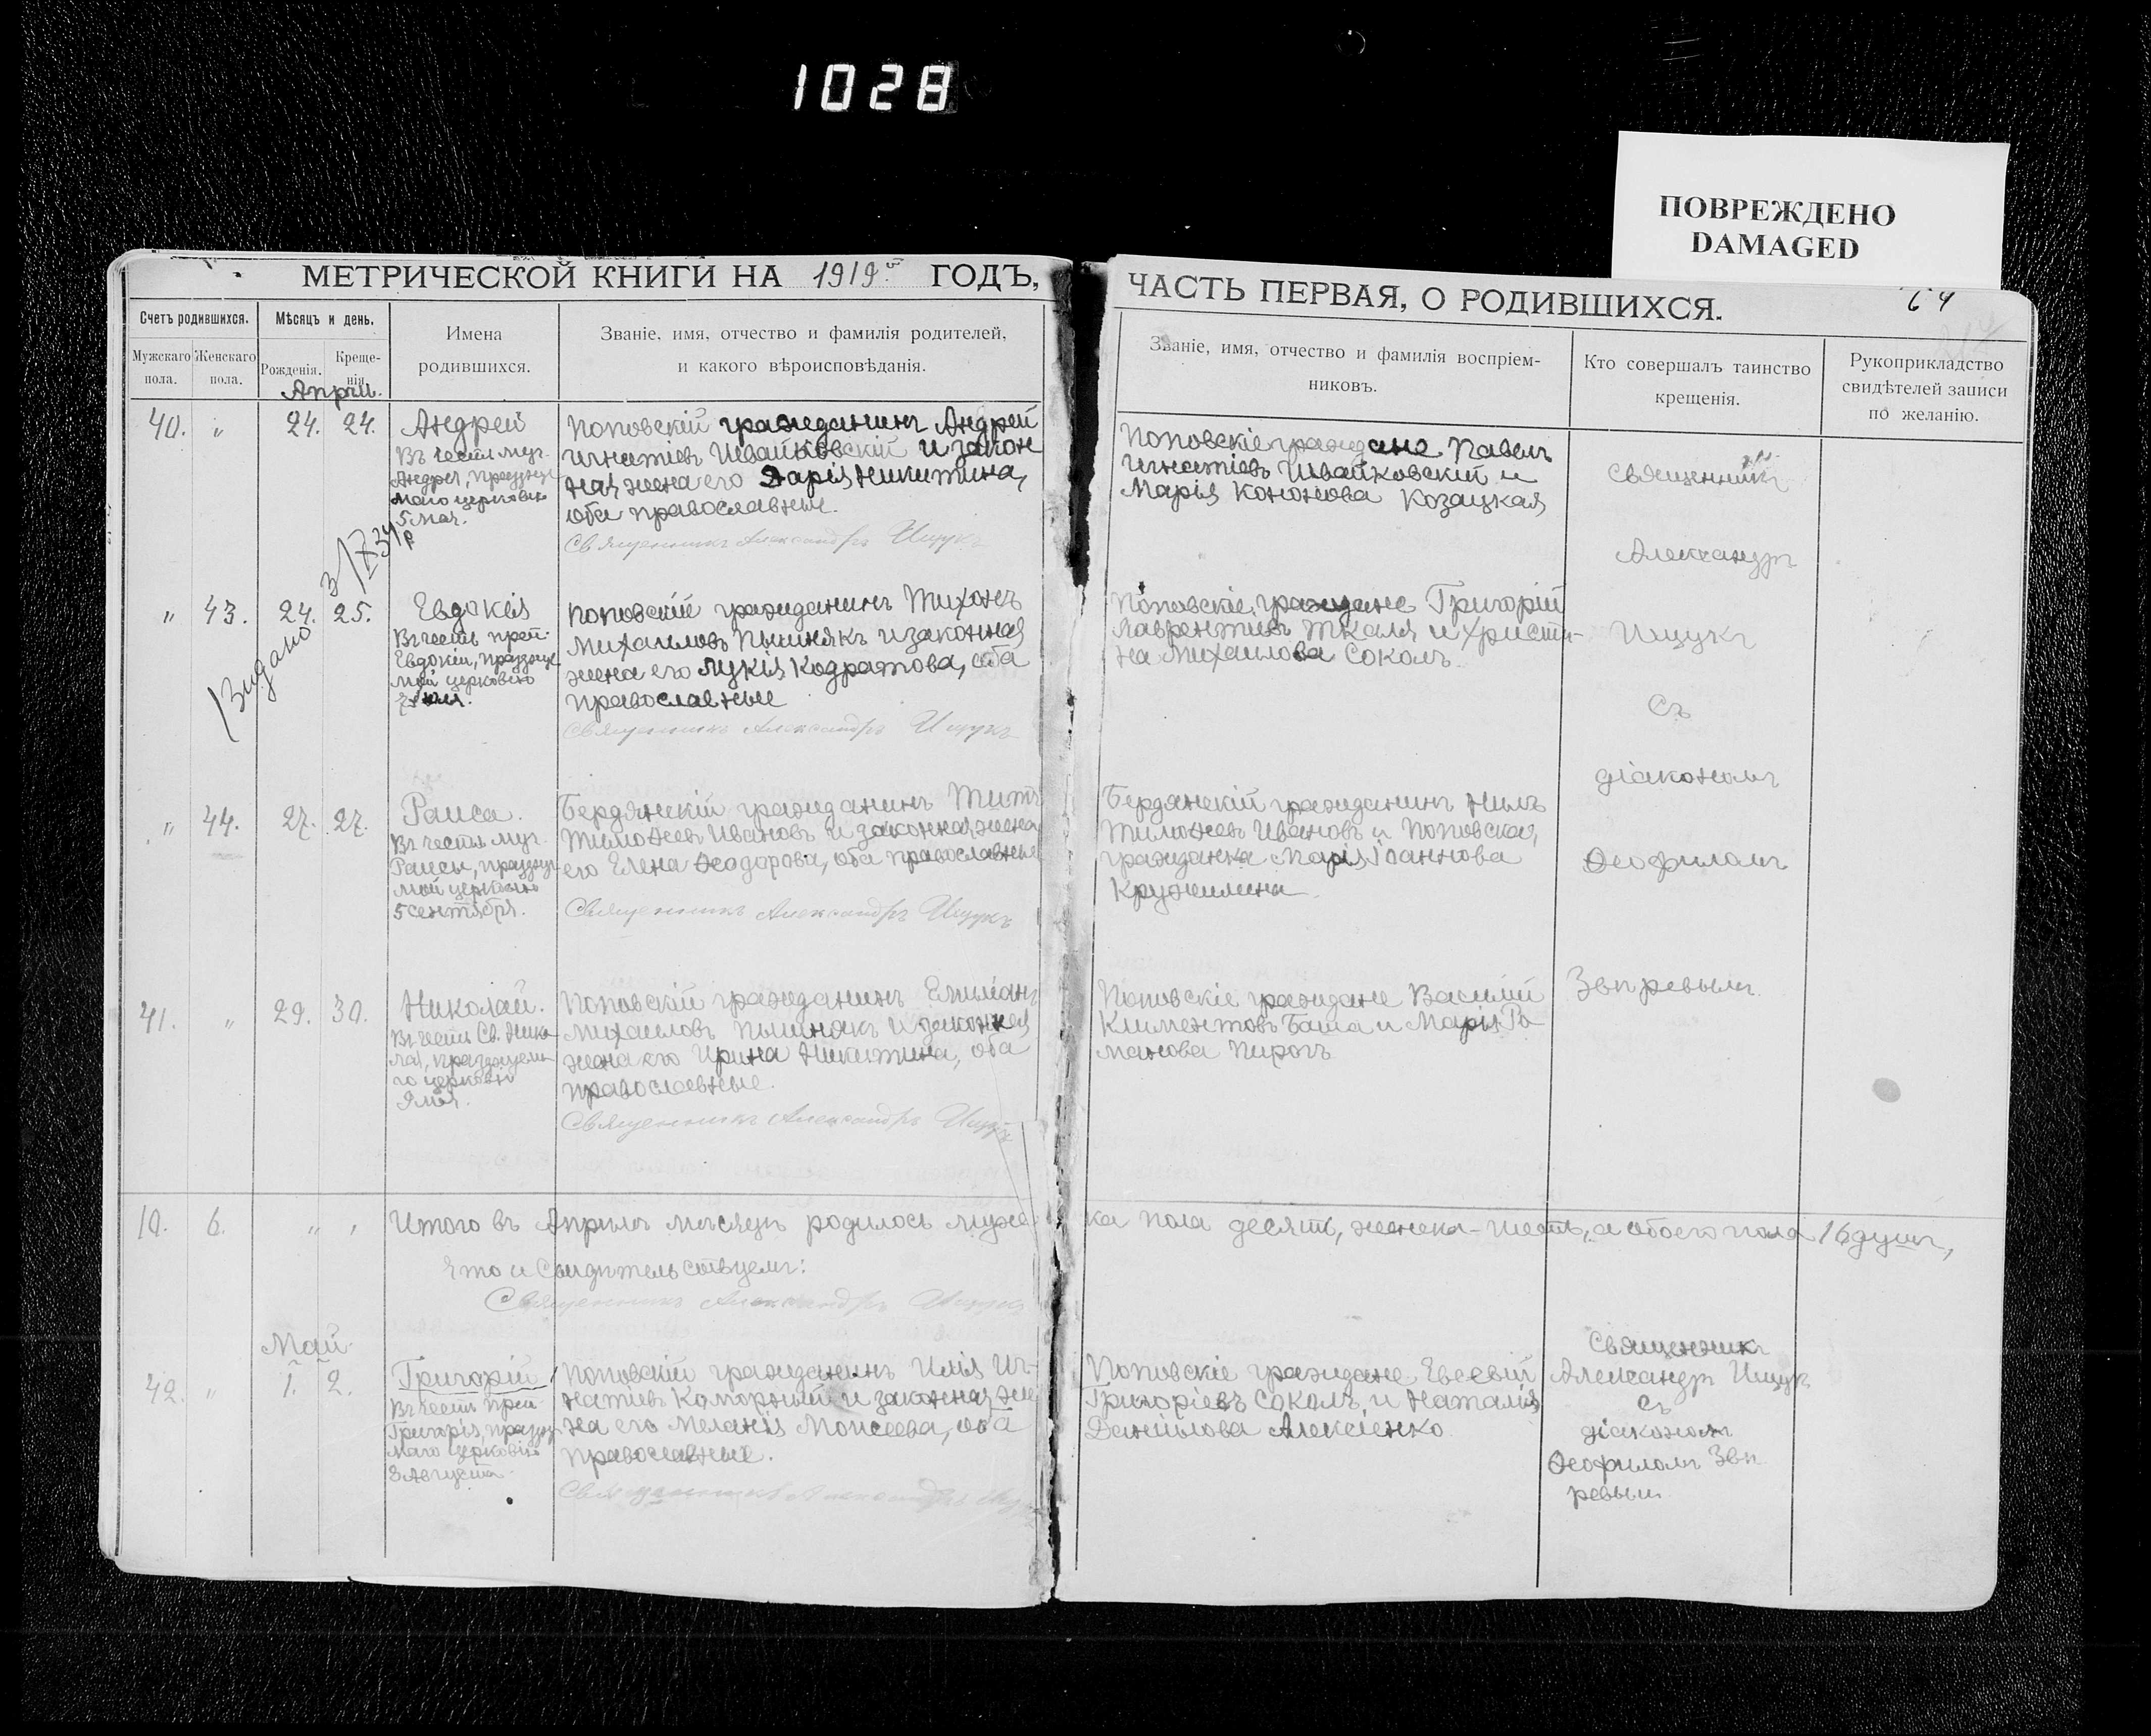 1028
ПОВРЕЖДЕНО
DAMAGED
МЕТРИЧЕСКОЙ КНИГИ НА 1919й ГОДЪ,
ЧАСТЬ ПЕРВАЯ, О РОДИВШИХСЯ.
64
Счетъ родившихся.
Мужскаго пола.
Женскаго пола.
Мѣсяцъ и день.
Рожденія.
Креще-
нія.
Имена
родившихся.
Званіе, имя, отчество и фамилія родителей,
и какого вѣроисповѣданія.
Званіе, имя, отчество и фамилія воспріем-
никовъ.
Кто совершалъ таинство
крещенія.
Рукоприкладство
свидѣтелей записи
по желанію.
Апрѣль.
40. " 24. 24.
Андрей
Въ честь муч.
Андрея, празднуе
маго церковію
5 мая.
Поповскій гражданинъ Андрей
Игнатіевъ Швайковскій и закон
ная жена его Дарія Никитина,
оба православные.
Священникъ Александръ Ищукъ
Поповскіе граждане Павелъ
Игнатіевъ Швайковскій и
Марія Кононова Козацкая
Священникъ
Александръ
Ищукъ
Съ
діакономъ
Ѳеофиломъ
Звѣревымъ
Видано
" 43. 24. 25.
Евдокія
Въ честь преп.
Евдокіи, празднуе
мой церковію
Поповскій гражданинъ Тихонъ
Михаиловъ Пышнякъ и законная
жена его Лукія Кодратова, оба
православные
Священникъ Александръ Ищукъ
Поповскіе граждане Григорій
Лаврентіевъ Ткаля и Христи-
на Михаилова Соколъ.
" 44. 27. 27.
Раиса.
Въ честь муч.
Раисы, празднуе-
мой церковію
5 сентября.
Бердянскій гражданинъ Титъ
Тимоѳеевъ Ивановъ и законная жена
его Елена Ѳеодорова, оба православные
Священникъ Александръ Ищукъ
Бердянскій гражданинъ Нилъ
Тимоѳеевъ Ивановъ и Поповская
гражданка Марія Іоаннова
Кружилина.
41. " 29. 30.
Николай.
Въ честь Св. Нико-
лая, празднуема
го церковію
9 мая.
Поповскій гражданинъ Емиліанъ
Михаиловъ Пышнякъ и законная
жена его Ирина Никитина, оба
православные.
Священникъ Александръ Ищукъ
Поповскіе граждане Василій
Климентовъ Баша и Марія Ро-
манова Пирогъ
10. 6. " "
Итого въ Апрѣлѣ мѣсяцѣ родилось мужес-
ка пола десять, женска - шесть, а обоего пола 16 душъ,
Что и Свидѣтельствуемъ:
Священникъ Александръ Ищукъ
Май.
42. " 1. 2.
Григорій
Въ честь преп
Григорія, праздну
маго церковію
8 Августа.
Поповскій гражданинъ Илія Иг-
натіевъ Каморный и законная же
на его Меланія Моисеева, оба
православные.
Священникъ Александръ Ищукъ
Поповскіе граждане Евсевій
Григоріевъ Соколъ и Наталія
Даніилова Алексіенко
Священникъ
Александръ Ищукъ
Съ
діакономъ
Ѳеофиломъ Звѣ
ревымъ